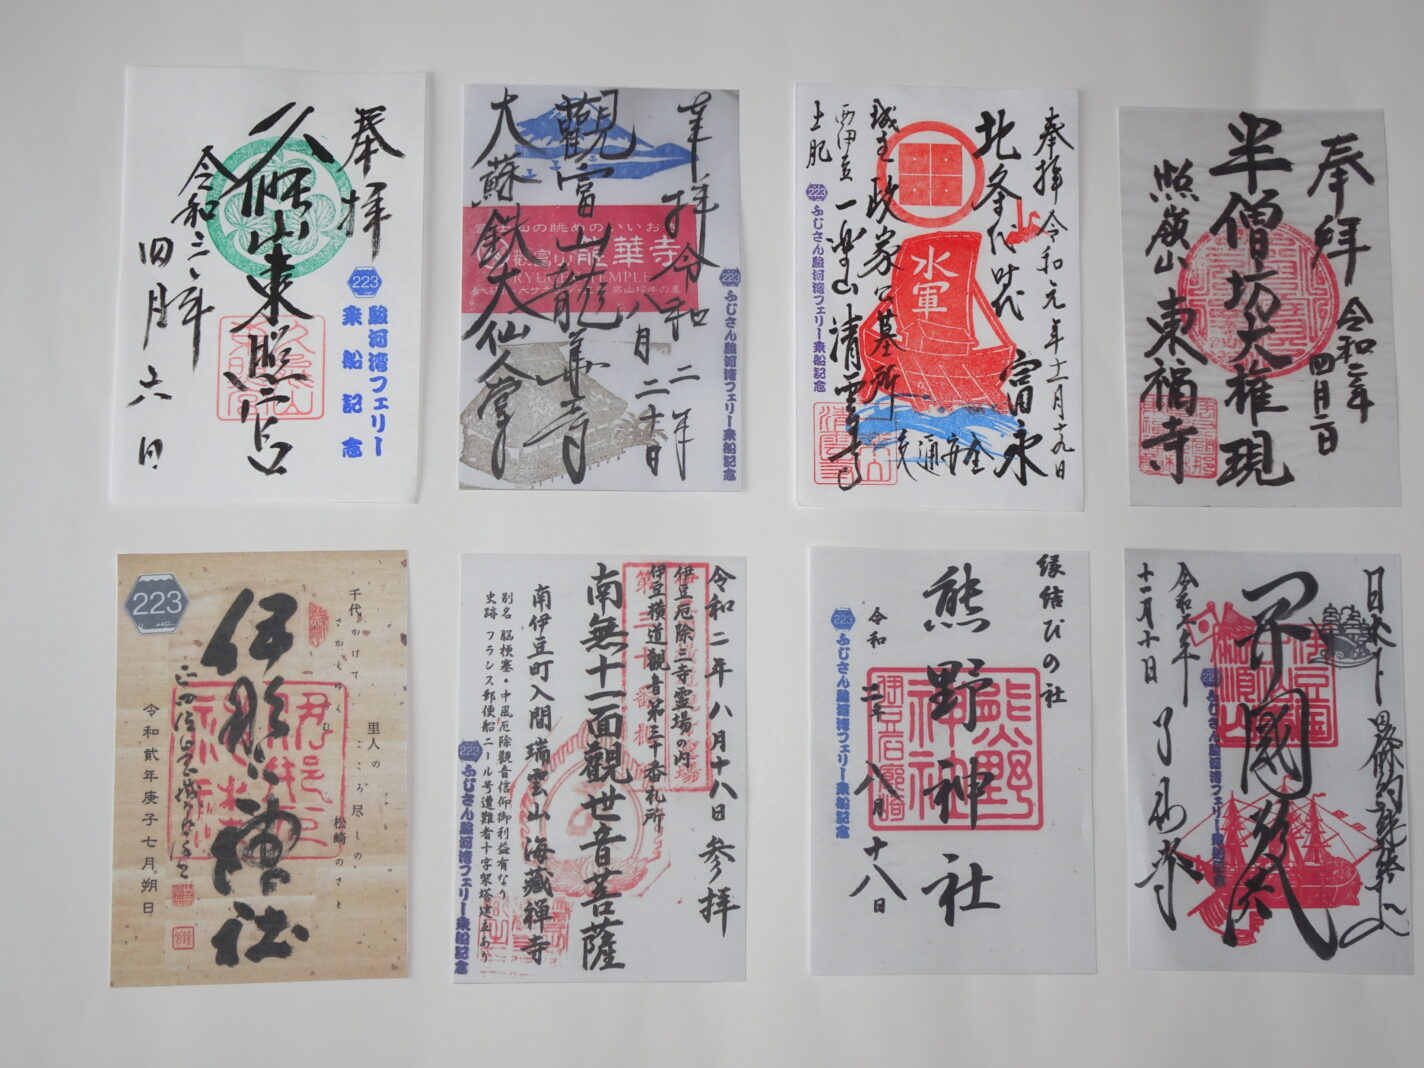 奉拝
久能山東照宮
令和二年
四月六日
223
駿河湾フェリー
乗船記念
奉拝 令和二年
八月二十日
觀富山龍華寺
大蘇鉄大仙人堂
龍華寺
TEMPLE
223
ふじさん駿河湾フェリー乗船記念
奉拝 令和元年十一月十九日
北条代時代 富永
水軍
城主政家公墓所
交通安全
西伊豆 一楽山清雲寺
土肥
223
ふじさん駿河湾フェリー乗船記念
奉拝 令和二年
四月二日
半僧坊大権現
照嶺山 東福寺
223
千代かけて
さかえゆくらむ
里人の
こころ尽しの
松崎のさと
伊那下神社
令和貳年庚子七月朔日
令和二年八月十八日 参拝
伊豆厄除三寺霊場の内
伊豆横道觀音第三十番札所
南無十一面觀世音菩薩
南伊豆町入間 瑞雲山 海蔵禅寺
別名 脳梗塞・中風厄除觀音信仰御利益有なり
史跡 フランス郵便船ニール号遭難者十字架塔建立あり
223
ふじさん駿河湾フェリー乗船記念
縁結びの社
熊野神社
熊野
神社
令和二年 八月十八日
223
ふじさん駿河湾フェリー乗船記念
開国
了仙寺
十二月十日
223
ふじさん駿河湾フェリー乗船記念